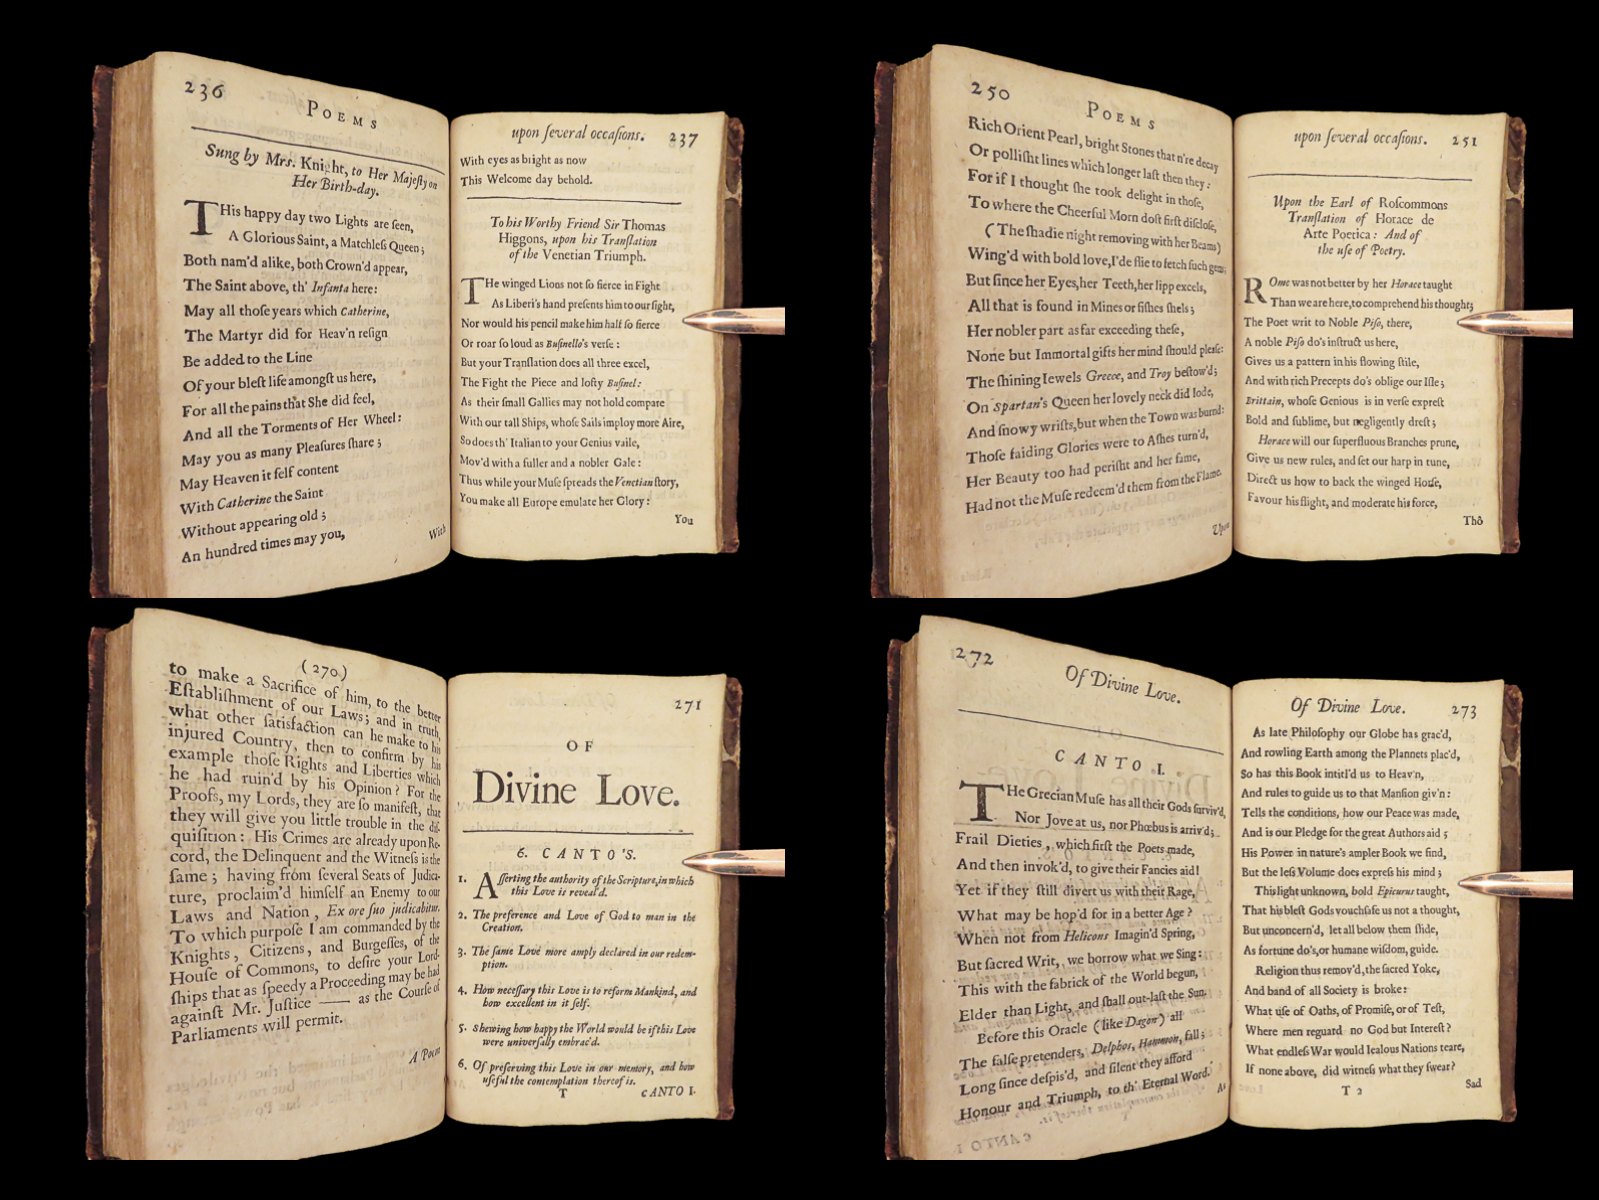 236
POEMS
Sung by Mrs. Knight, to Her Majeſty on
Her Birth-day.
THis happy day two Lights are ſeen,
A Glorious Saint, a Matchleſs Queen;
Both nam'd alike, both Crown'd appear,
The Saint above, th' Infanta here:
May all thoſe years which Catherine,
The Martyr did for Heav'n reſign
Be added to the Line
Of your bleſt life amongſt us here,
For all the pains that She did feel,
And all the Torments of Her Wheel:
May you as many Pleaſures ſhare;
May Heaven it ſelf content
With Catherine the Saint
Without appearing old;
An hundred times may you,
With
upon ſeveral occaſions. 237
With eyes as bright as now
This Welcome day behold.
To his Worthy Friend Sir Thomas
Higgons, upon his Tranſlation
of the Venetian Triumph.
THe winged Lions not ſo fierce in Fight
As Liberi's hand preſents him to our ſight,
Nor would his pencil make him half ſo fierce
Or roar ſo loud as Buſinello's verſe:
But your Tranſlation does all three excel,
The Fight the Piece and lofty Buſinel:
As their ſmall Gallies may not hold compare
With our tall Ships, whoſe Sails imploy more Aire,
So does th' Italian to your Genius vaile,
Mov'd with a fuller and a nobler Gale:
Thus while your Muſe ſpreads the Venetian ſtory,
You make all Europe emulate her Glory:
You
250
POEMS
Rich Orient Pearl, bright Stones that n're decay
Or polliſht lines which longer laſt then they:
For if I thought ſhe took delight in thoſe,
To where the Cheerful Morn doſt firſt diſcloſe,
(The ſhadie night removing with her Beams)
Wing'd with bold love, I'de flie to fetch ſuch gems.
But ſince her Eyes, her Teeth, her lipp excels,
All that is found in Mines or fiſhes ſhels;
Her nobler part as far exceeding theſe,
None but Immortal gifts her mind ſhould pleaſe:
The ſhining Iewels Greece, and Troy beſtow'd;
On Spartan's Queen her lovely neck did lode,
And ſnowy wriſts, but when the Town was burnd:
Thoſe faiding Glories were to Aſhes turn'd,
Her Beauty too had periſht and her fame,
Had not the Muſe redeem'd them from the Flame.
Upon
upon ſeveral occaſions. 251
Upon the Earl of Roſcommons
Tranſlation of Horace de
Arte Poetica: And of
the uſe of Poetry.
ROme was not better by her Horace taught
Than we are here, to comprehend his thought;
The Poet writ to Noble Piſo, there,
A noble Piſo do's inſtruct us here,
Gives us a pattern in his flowing ſtile,
And with rich Precepts do's oblige our Iſle;
Brittain, whoſe Genious is in verſe expreſt
Bold and ſublime, but negligently dreſt;
Horace will our ſuperfluous Branches prune,
Give us new rules, and ſet our harp in tune,
Direct us how to back the winged Horſe,
Favour his flight, and moderate his force,
Thô
(270)
to make a Sacrifice of him, to the better
Eſtabliſhment of our Laws; and in truth,
what other ſatisfaction can he make to his
injured Country, then to confirm by his
example thoſe Rights and Liberties which
he had ruin'd by his Opinion? For the
Proofs, my Lords, they are ſo manifeſt, that
they will give you little trouble in the diſ-
quiſition: His Crimes are already upon Re-
cord, the Delinquent and the Witneſs is the
ſame; having from ſeveral Seats of Judica-
ture, proclaim'd himſelf an Enemy to our
Laws and Nation, Ex ore ſuo judicabitur.
To which purpoſe I am commanded by the
Knights, Citizens, and Burgeſſes, of the
Houſe of Commons, to deſire your Lord-
ſhips that as ſpeedy a Proceeding may be had
againſt Mr. Juſtice —— as the Courſe of
Parliaments will permit.
A Poem
271
OF
Divine Love.
6. CANTO'S.
1. Aſſerting the authority of the Scripture, in which
this Love is reveal'd.
2. The preference and Love of God to man in the
Creation.
3. The ſame Love more amply declared in our redem-
ption.
4. How neceſſary this Love is to reform Mankind, and
how excellent in it ſelf.
5. Shewing how happy the World would be if this Love
were univerſally embrac'd.
6. Of preſerving this Love in our memory, and how
uſeful the contemplation thereof is.
T CANTO I.
272
Of Divine Love.
CANTO I.
THe Grecian Muſe has all their Gods ſurviv'd,
Nor Jove at us, nor Phœbus is arriv'd;
Frail Dieties, which firſt the Poets made,
And then invok'd, to give their Fancies aid!
Yet if they ſtill divert us with their Rage,
What may be hop'd for in a better Age?
When not from Helicons Imagin'd Spring,
But ſacred Writ, we borrow what we Sing:
This with the fabrick of the World begun,
Elder than Light, and ſhall out-laſt the Sun.
Before this Oracle (like Dagon) all
The falſe pretenders, Delphos, Hammon, fall;
Long ſince deſpis'd, and ſilent they afford
Honour and Triumph, to th' Eternal Word.
As
Of Divine Love. 273
As late Philoſophy our Globe has grac'd,
And rowling Earth among the Plannets plac'd,
So has this Book intitl'd us to Heav'n,
And rules to guide us to that Manſion giv'n:
Tells the conditions, how our Peace was made,
And is our Pledge for the great Authors aid;
His Power in nature's ampler Book we find,
But the leſs Volume does expreſs his mind;
This light unknown, bold Epicurus taught,
That his bleſt Gods vouchſafe us not a thought,
But unconcern'd, let all below them ſlide,
As fortune do's, or humane wiſdom, guide.
Religion thus remov'd, the ſacred Yoke,
And band of all Society is broke:
What uſe of Oaths, of Promiſe, or of Teſt,
Where men reguard no God but Intereſt?
What endleſs War would Iealous Nations teare,
If none above, did witneſs what they ſwear?
T 2 Sad